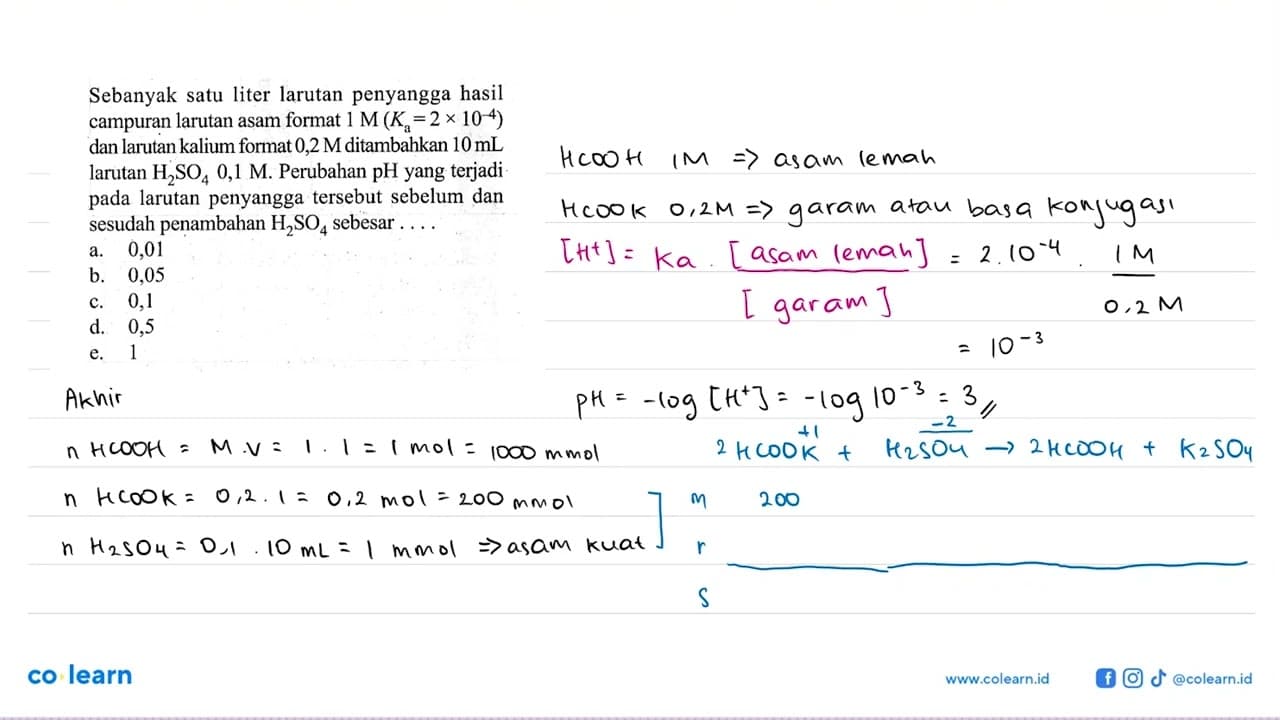 Sebanyak satu liter larutan penyangga hasil
campuran larutan asam format 1 M (Kₐ = 2 × 10⁻⁴)
dan larutan kalium format 0,2 M ditambahkan 10 mL
larutan H₂SO₄ 0,1 M. Perubahan pH yang terjadi
pada larutan penyangga tersebut sebelum dan
sesudah penambahan H₂SO₄ sebesar . . . .
a. 0,01
b. 0,05
c. 0,1
d. 0,5
e. 1
HCOOH 1M => asam lemah
HCOOK 0,2M => garam atau basa konjugasi
[H⁺] = Ka . [asam lemah] = 2.10⁻⁴ . 1 M
[garam] 0,2 M
= 10⁻³
pH = -log [H⁺] = -log 10⁻³ = 3 //
Akhir
n HCOOH = M.V = 1 . 1 = 1 mol = 1000 mmol
n HCOOK = 0,2 . 1 = 0,2 mol = 200 mmol
n H₂SO₄ = 0,1 . 10 mL = 1 mmol => asam kuat
+1 -2
2 HCOOK + H₂SO₄ → 2HCOOH + K₂SO₄
m 200
r
s
co learn
www.colearn.id @colearn.id